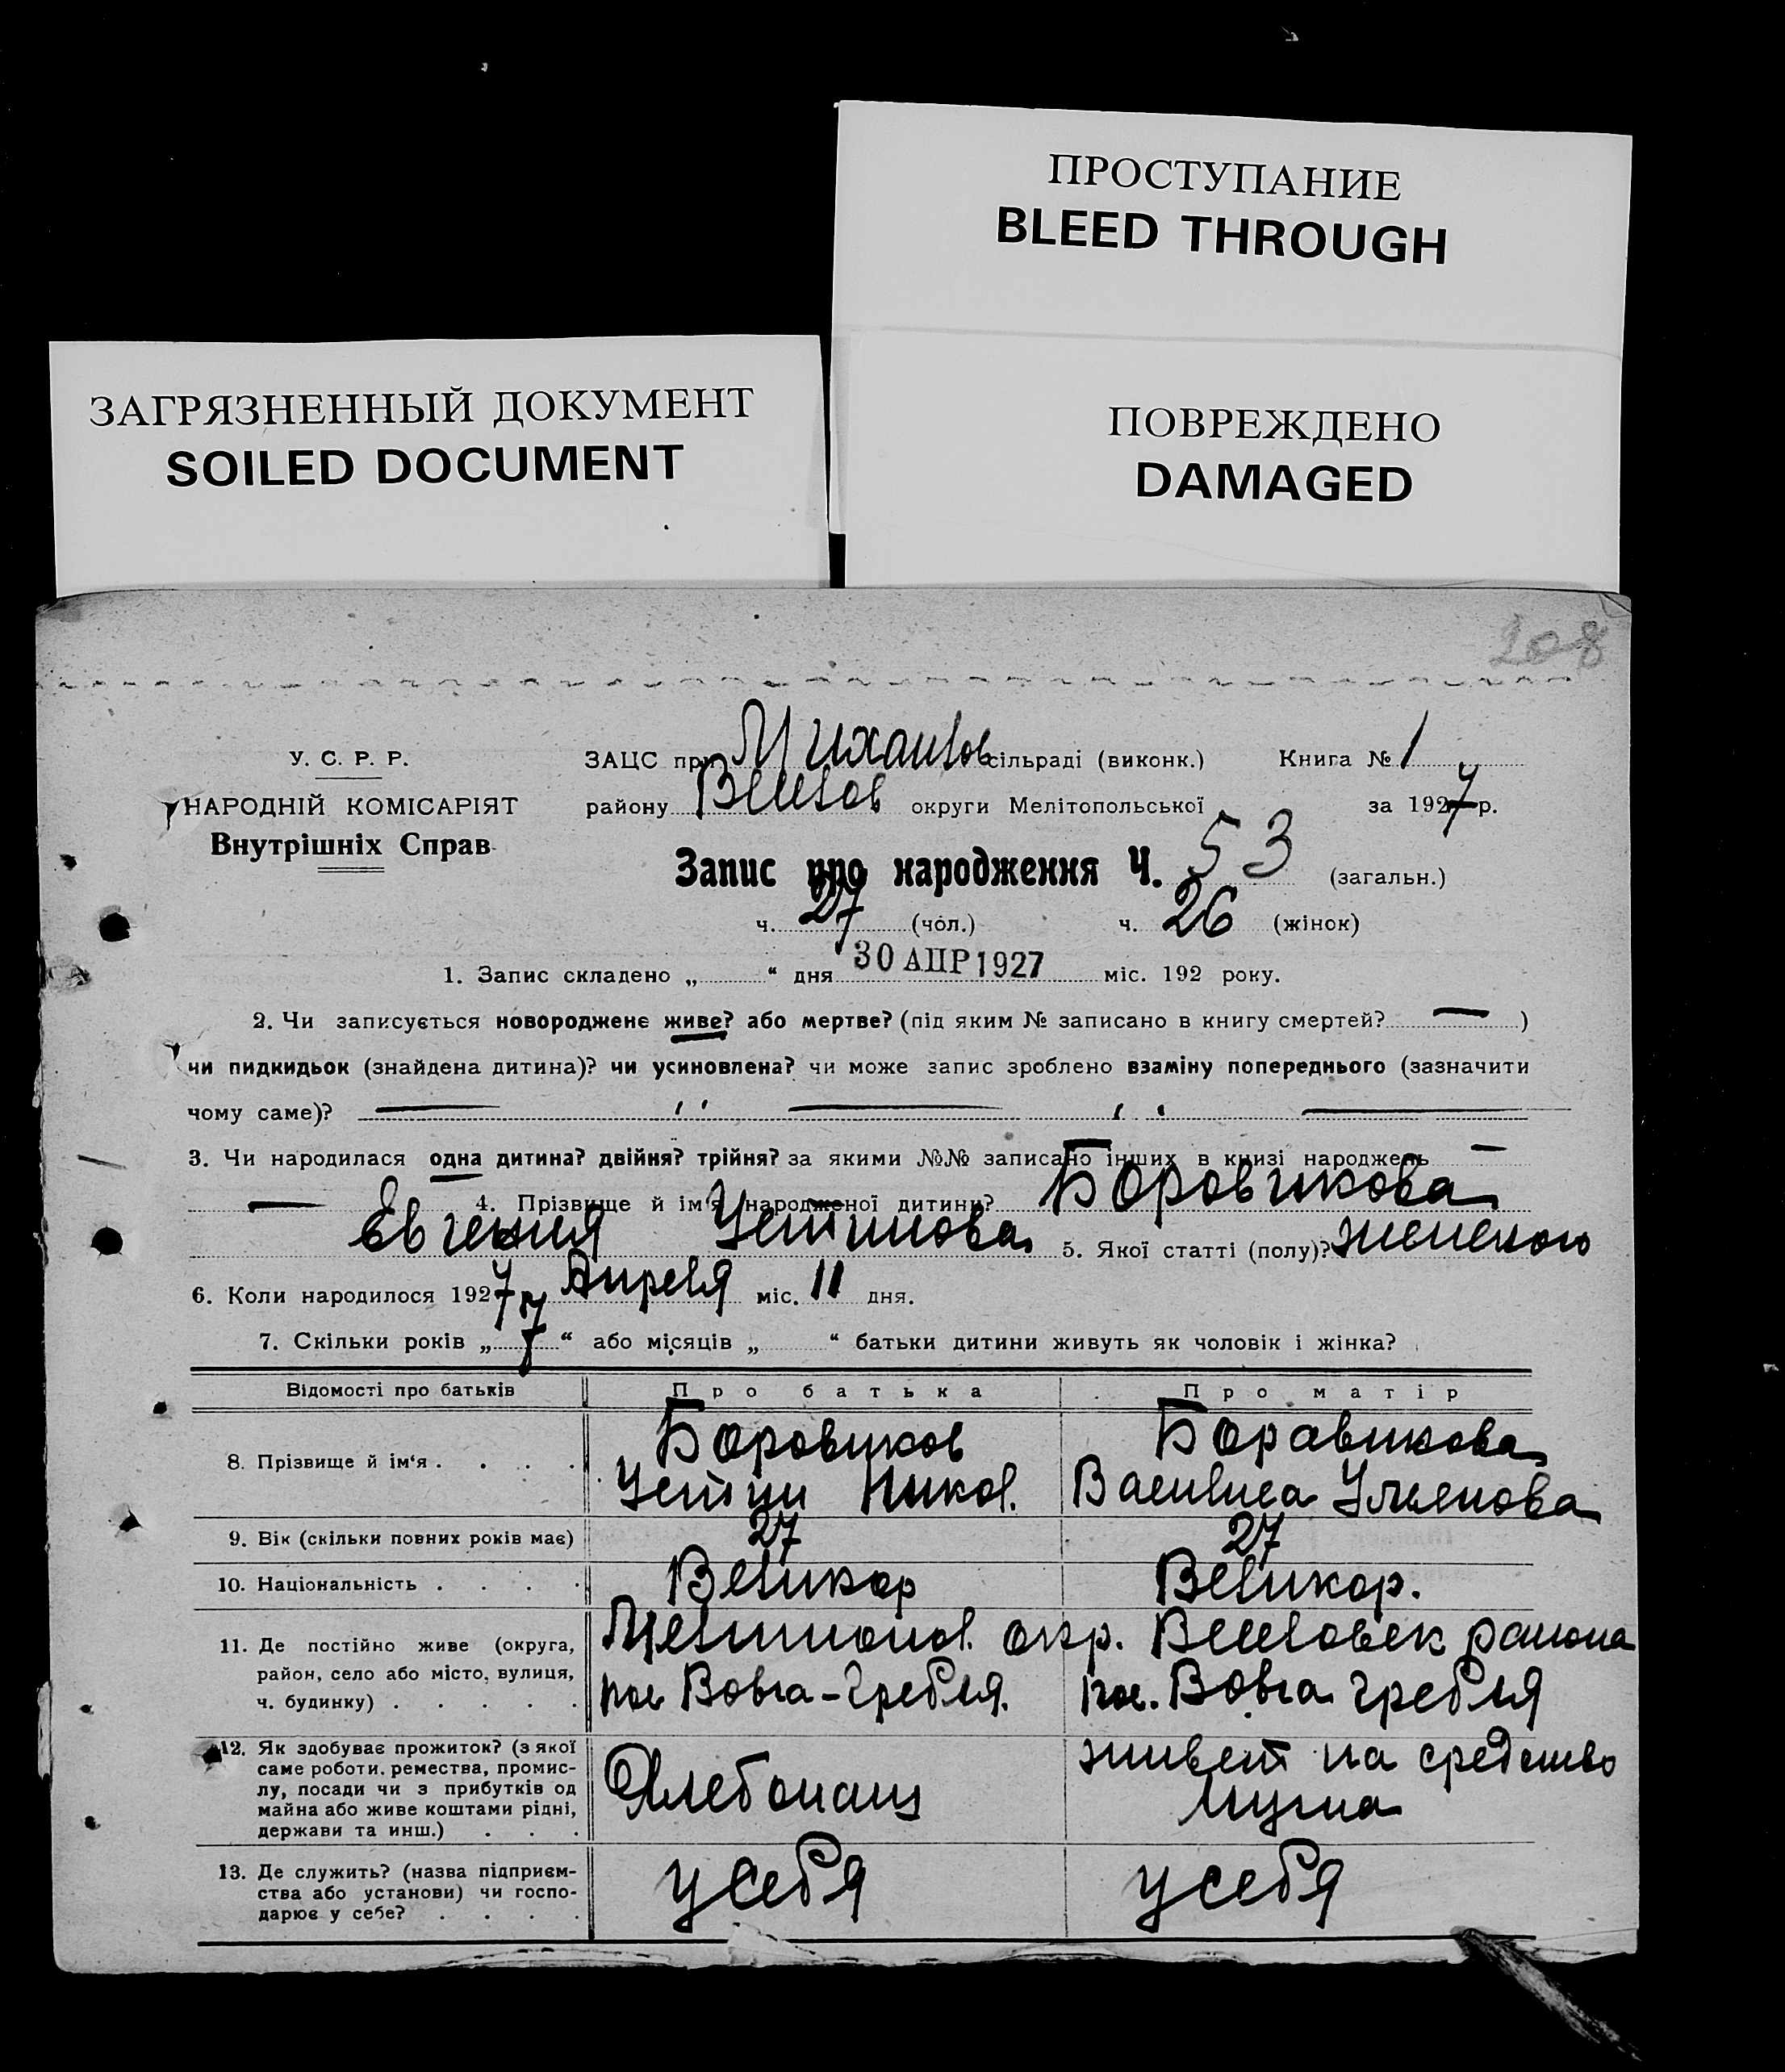 ПРОСТУПАНИЕ
BLEED THROUGH
ЗАГРЯЗНЕННЫЙ ДОКУМЕНТ
SOILED DOCUMENT
ПОВРЕЖДЕНО
DAMAGED
208
У. С. Р. Р.
НАРОДНІЙ КОМІСАРІЯТ
Внутрішніх Справ
ЗАЦС при Михайлов сільраді (виконк.) Книга № 1
району Веселов округи Мелітопольської за 1927 р.
Запис про народження Ч. 53 (загальн.)
ч. 27 (чол.) ч. 26 (жінок)
1. Запис складено „ “ дня 30 АПР 1927 міс. 192 року.
2. Чи записується новороджене живе? або мертве? (під яким № записано в книгу смертей? — )
чи пидкидьок (знайдена дитина)? чи усиновлена? чи може запис зроблено взаміну попереднього (зазначити
чому саме)? — " — " —
3. Чи народилася одна дитина? двійня? трійня? за якими №№ записано інших в книзі народжень —
— 4. Прізвище й ім'я народженої дитини? Боровикова
Евгения Устинова 5. Якої статті (полу)? женского
6. Коли народилося 1927 р. Апреля міс. 11 дня.
7. Скільки років „ 7 “ або місяців „ “ батьки дитини живуть як чоловік і жінка?
Відомості про батьків Про батька Про матір
8. Прізвище й ім'я . . . . . Боровиков Боравикова
Устин Никол. Василиса Ульянова
9. Вік (скільки повних років має) 27 27
10. Національність . . . . Великор Великор.
11. Де постійно живе (округа,
район, село або місто, вулиця,
ч. будинку) . . . . .
Мелитопол. окр. Веселовск района
пос Вовча-Гребля. пос. Вовча Гребля
12. Як здобуває прожиток? (з якої
саме роботи, ремества, промис-
лу, посади чи з прибутків од
майна або живе коштами рідні,
держави та инш.) . . .
Хлебопаш
живет на средство
мужа
13. Де служить? (назва підприєм-
ства або установи) чи госпо-
дарює у себе? . . . .
у себя у себя